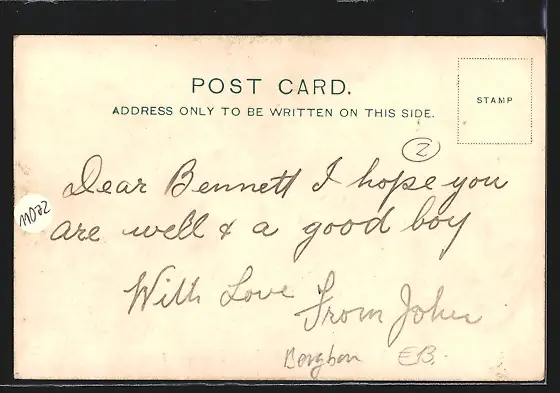 POST CARD.
ADDRESS ONLY TO BE WRITTEN ON THIS SIDE.
STAMP
2
Dear Bennett I hope you
are well & a good boy
With Love
From John
EB.